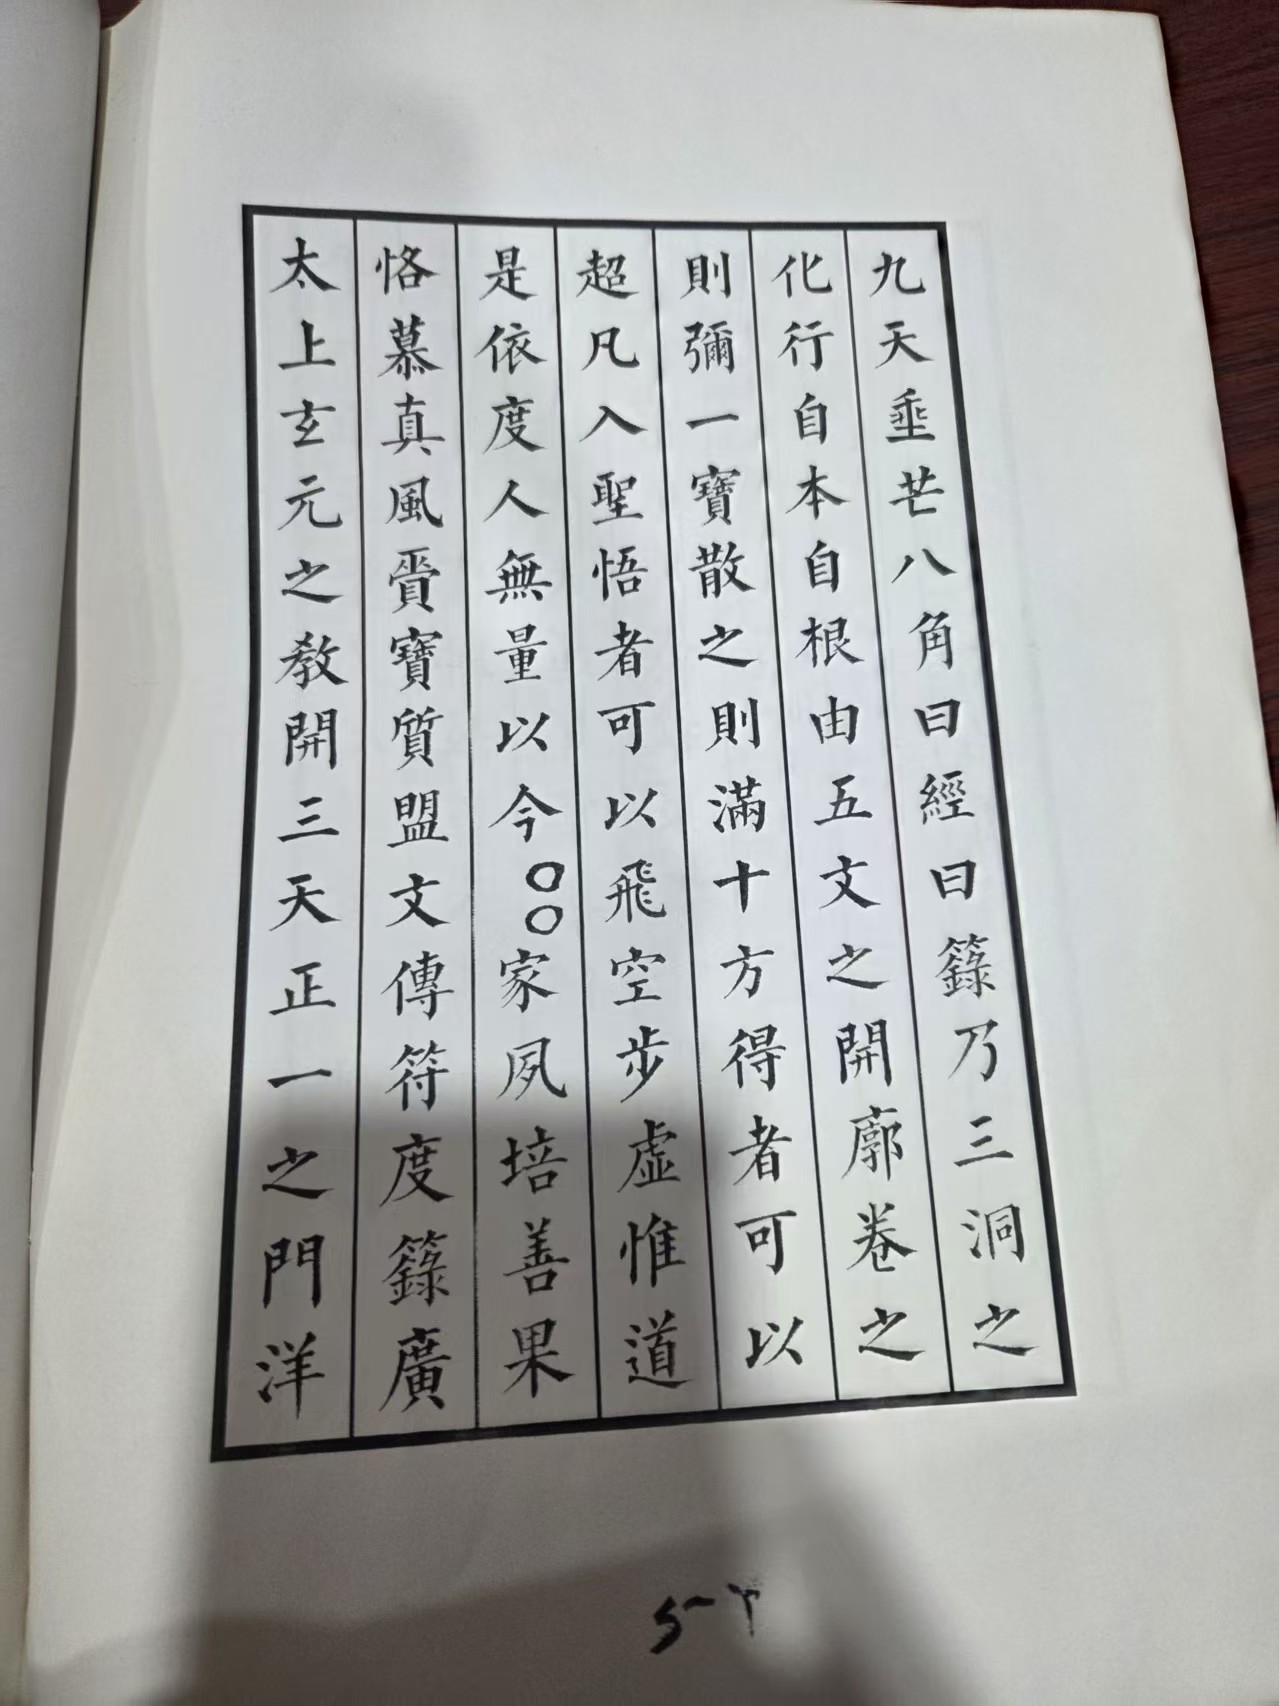 九天垂芒八角曰經曰籙乃三洞之
化行自本自根由五文之開廓卷之
則彌一寶散之則滿十方得者可以
超凡入聖悟者可以飛空步虛惟道
是依度人無量以今○○家夙培善果
恪慕真風賫寶質盟文傳符度籙廣
太上玄元之教開三天正一之門洋